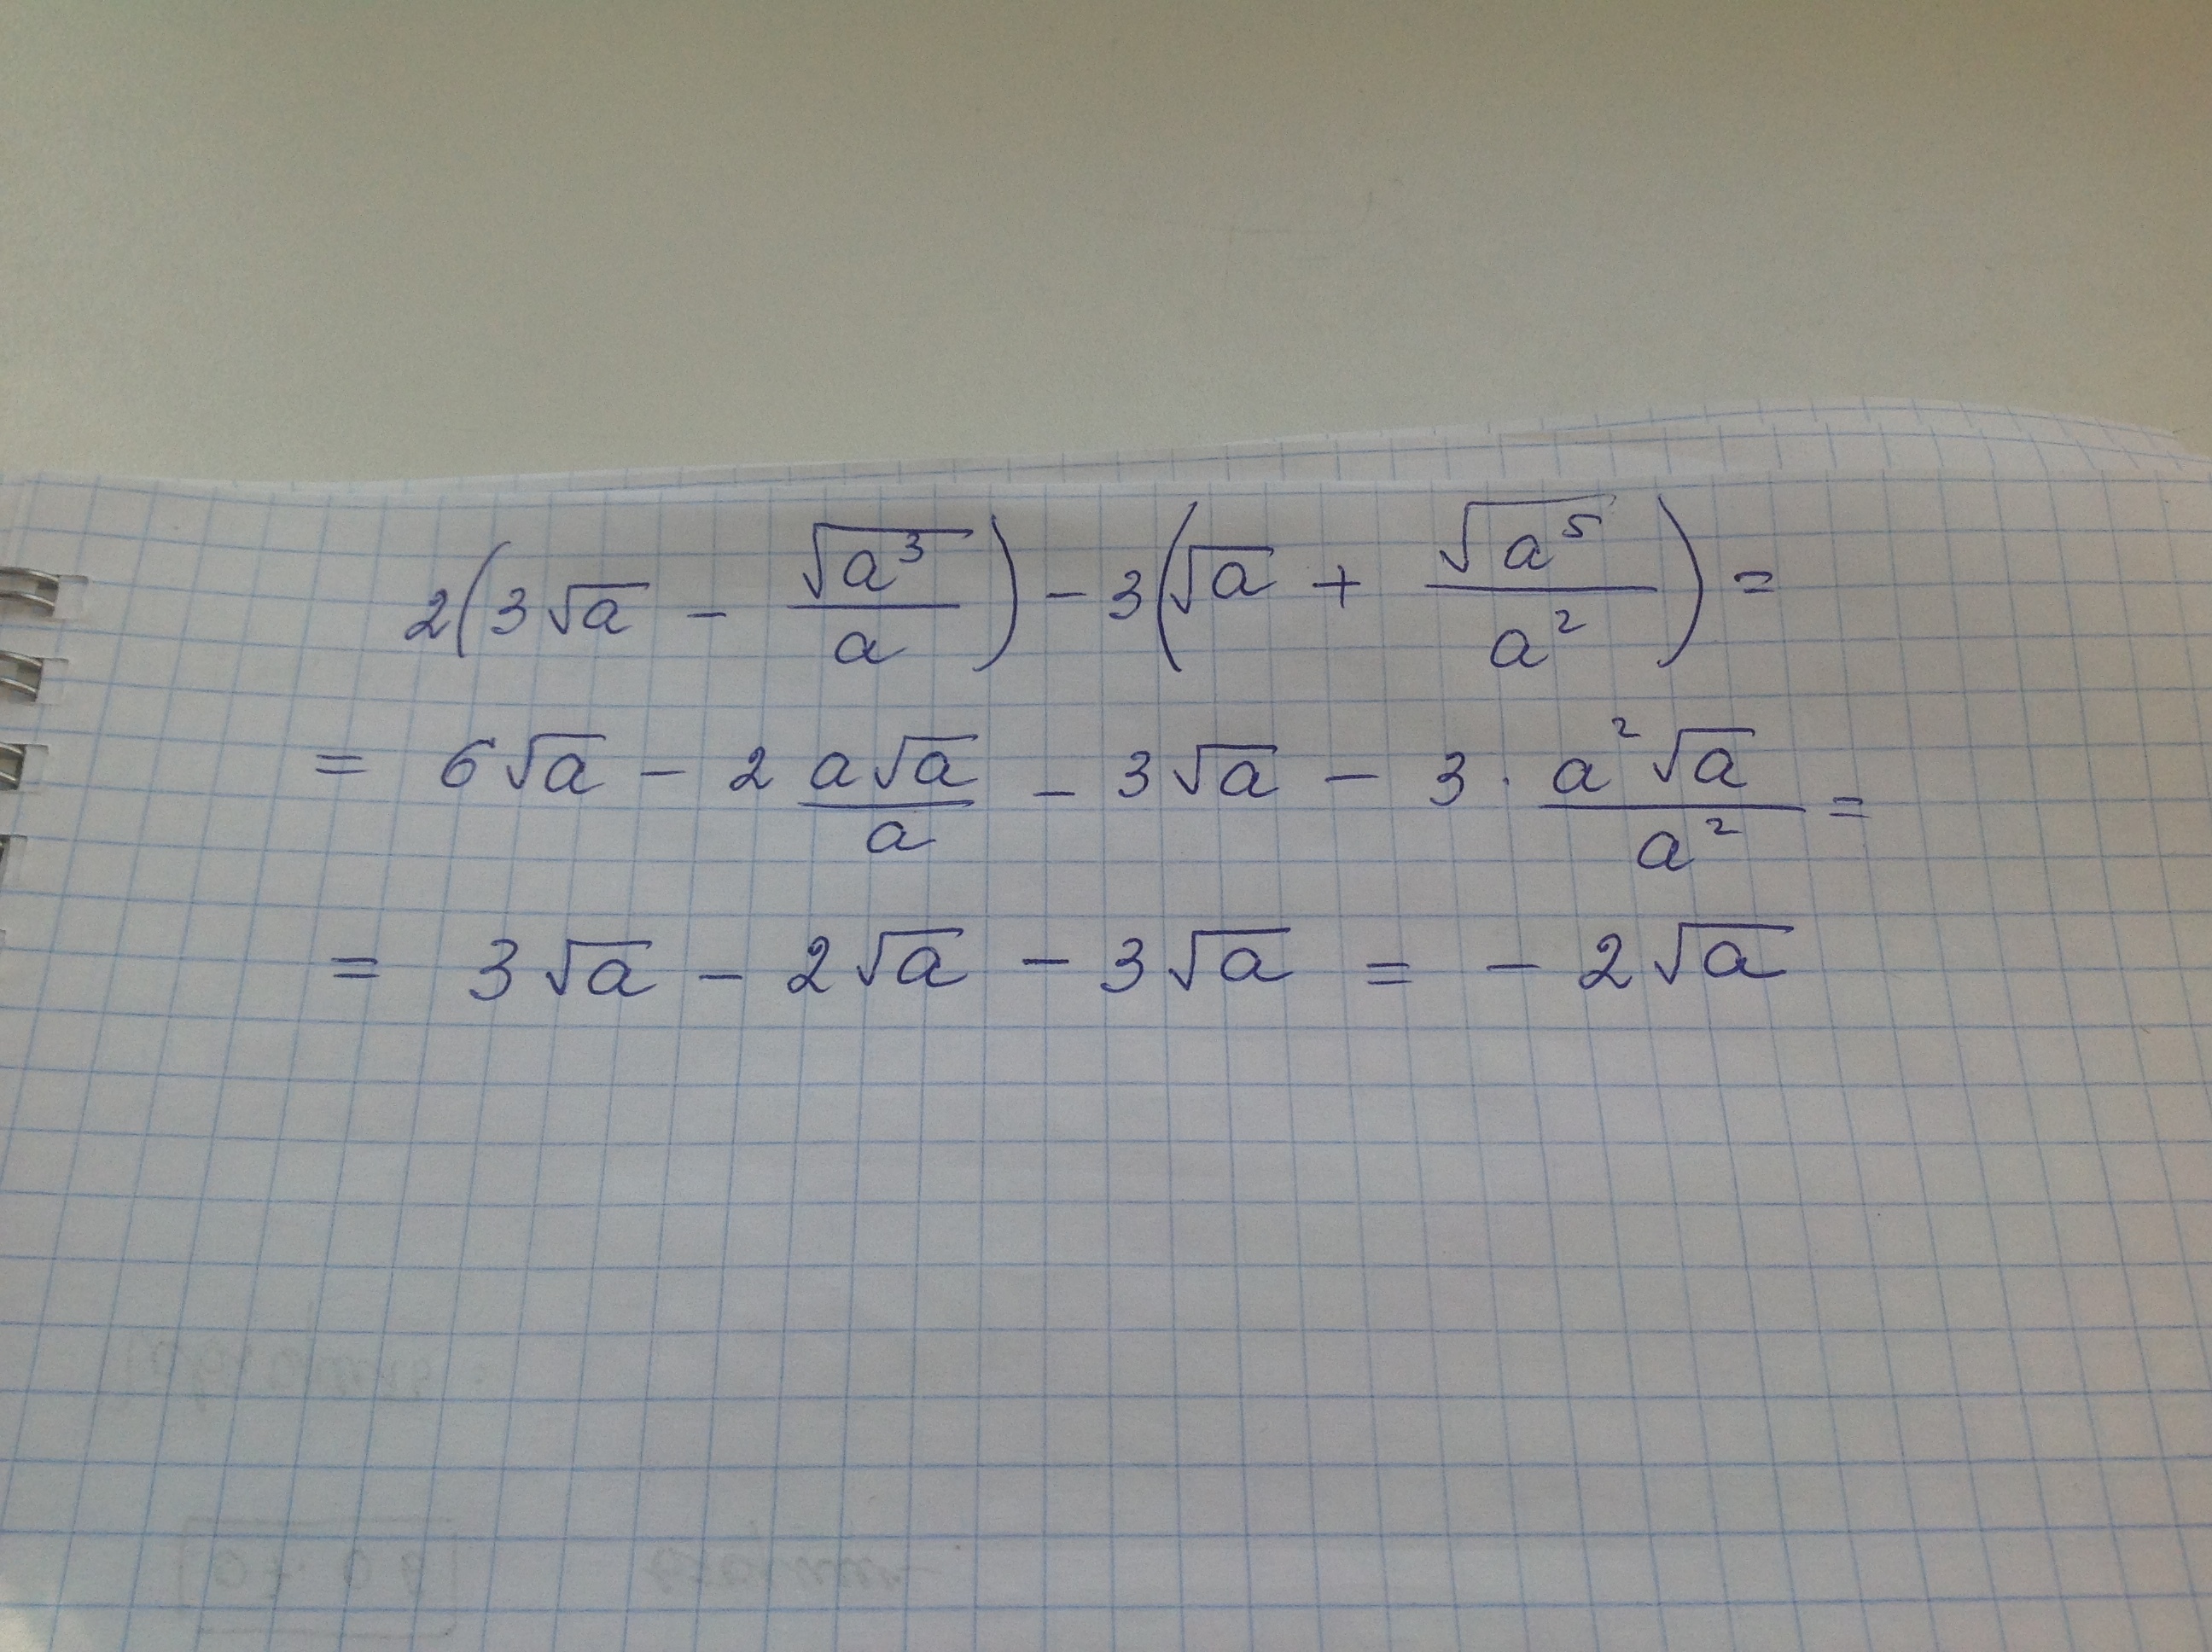 2(3√a - √a³/a) - 3(√a + √a⁵/a²) =
= 6√a - 2 a√a/a - 3√a - 3 · a²√a/a² =
= 3√a - 2√a - 3√a = - 2√a